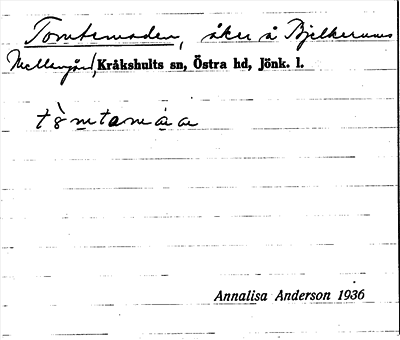 Tomtemaden, åker å Bjelkerums
Mellangård, Kråkshults sn, Östra hd, Jönk. l.
Annalisa Anderson 1936